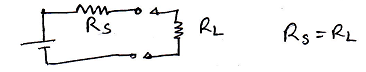 Rs
RL
Rs = RL